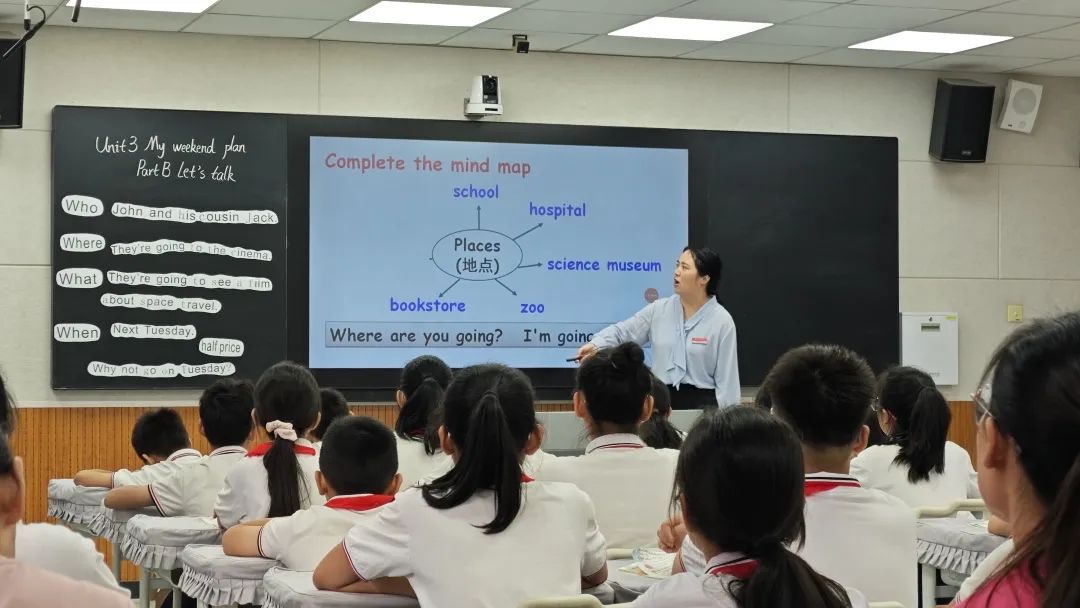 Unit 3 My weekend plan
Part B Let's talk
Who
John and his cousin Jack
Where
They're going to the cinema.
What
They're going to see a film
about space travel.
When
Next Tuesday.
half price
Why not go on Tuesday?
Complete the mind map
school
hospital
Places
(地点)
science museum
bookstore
zoo
Where are you going? I'm going